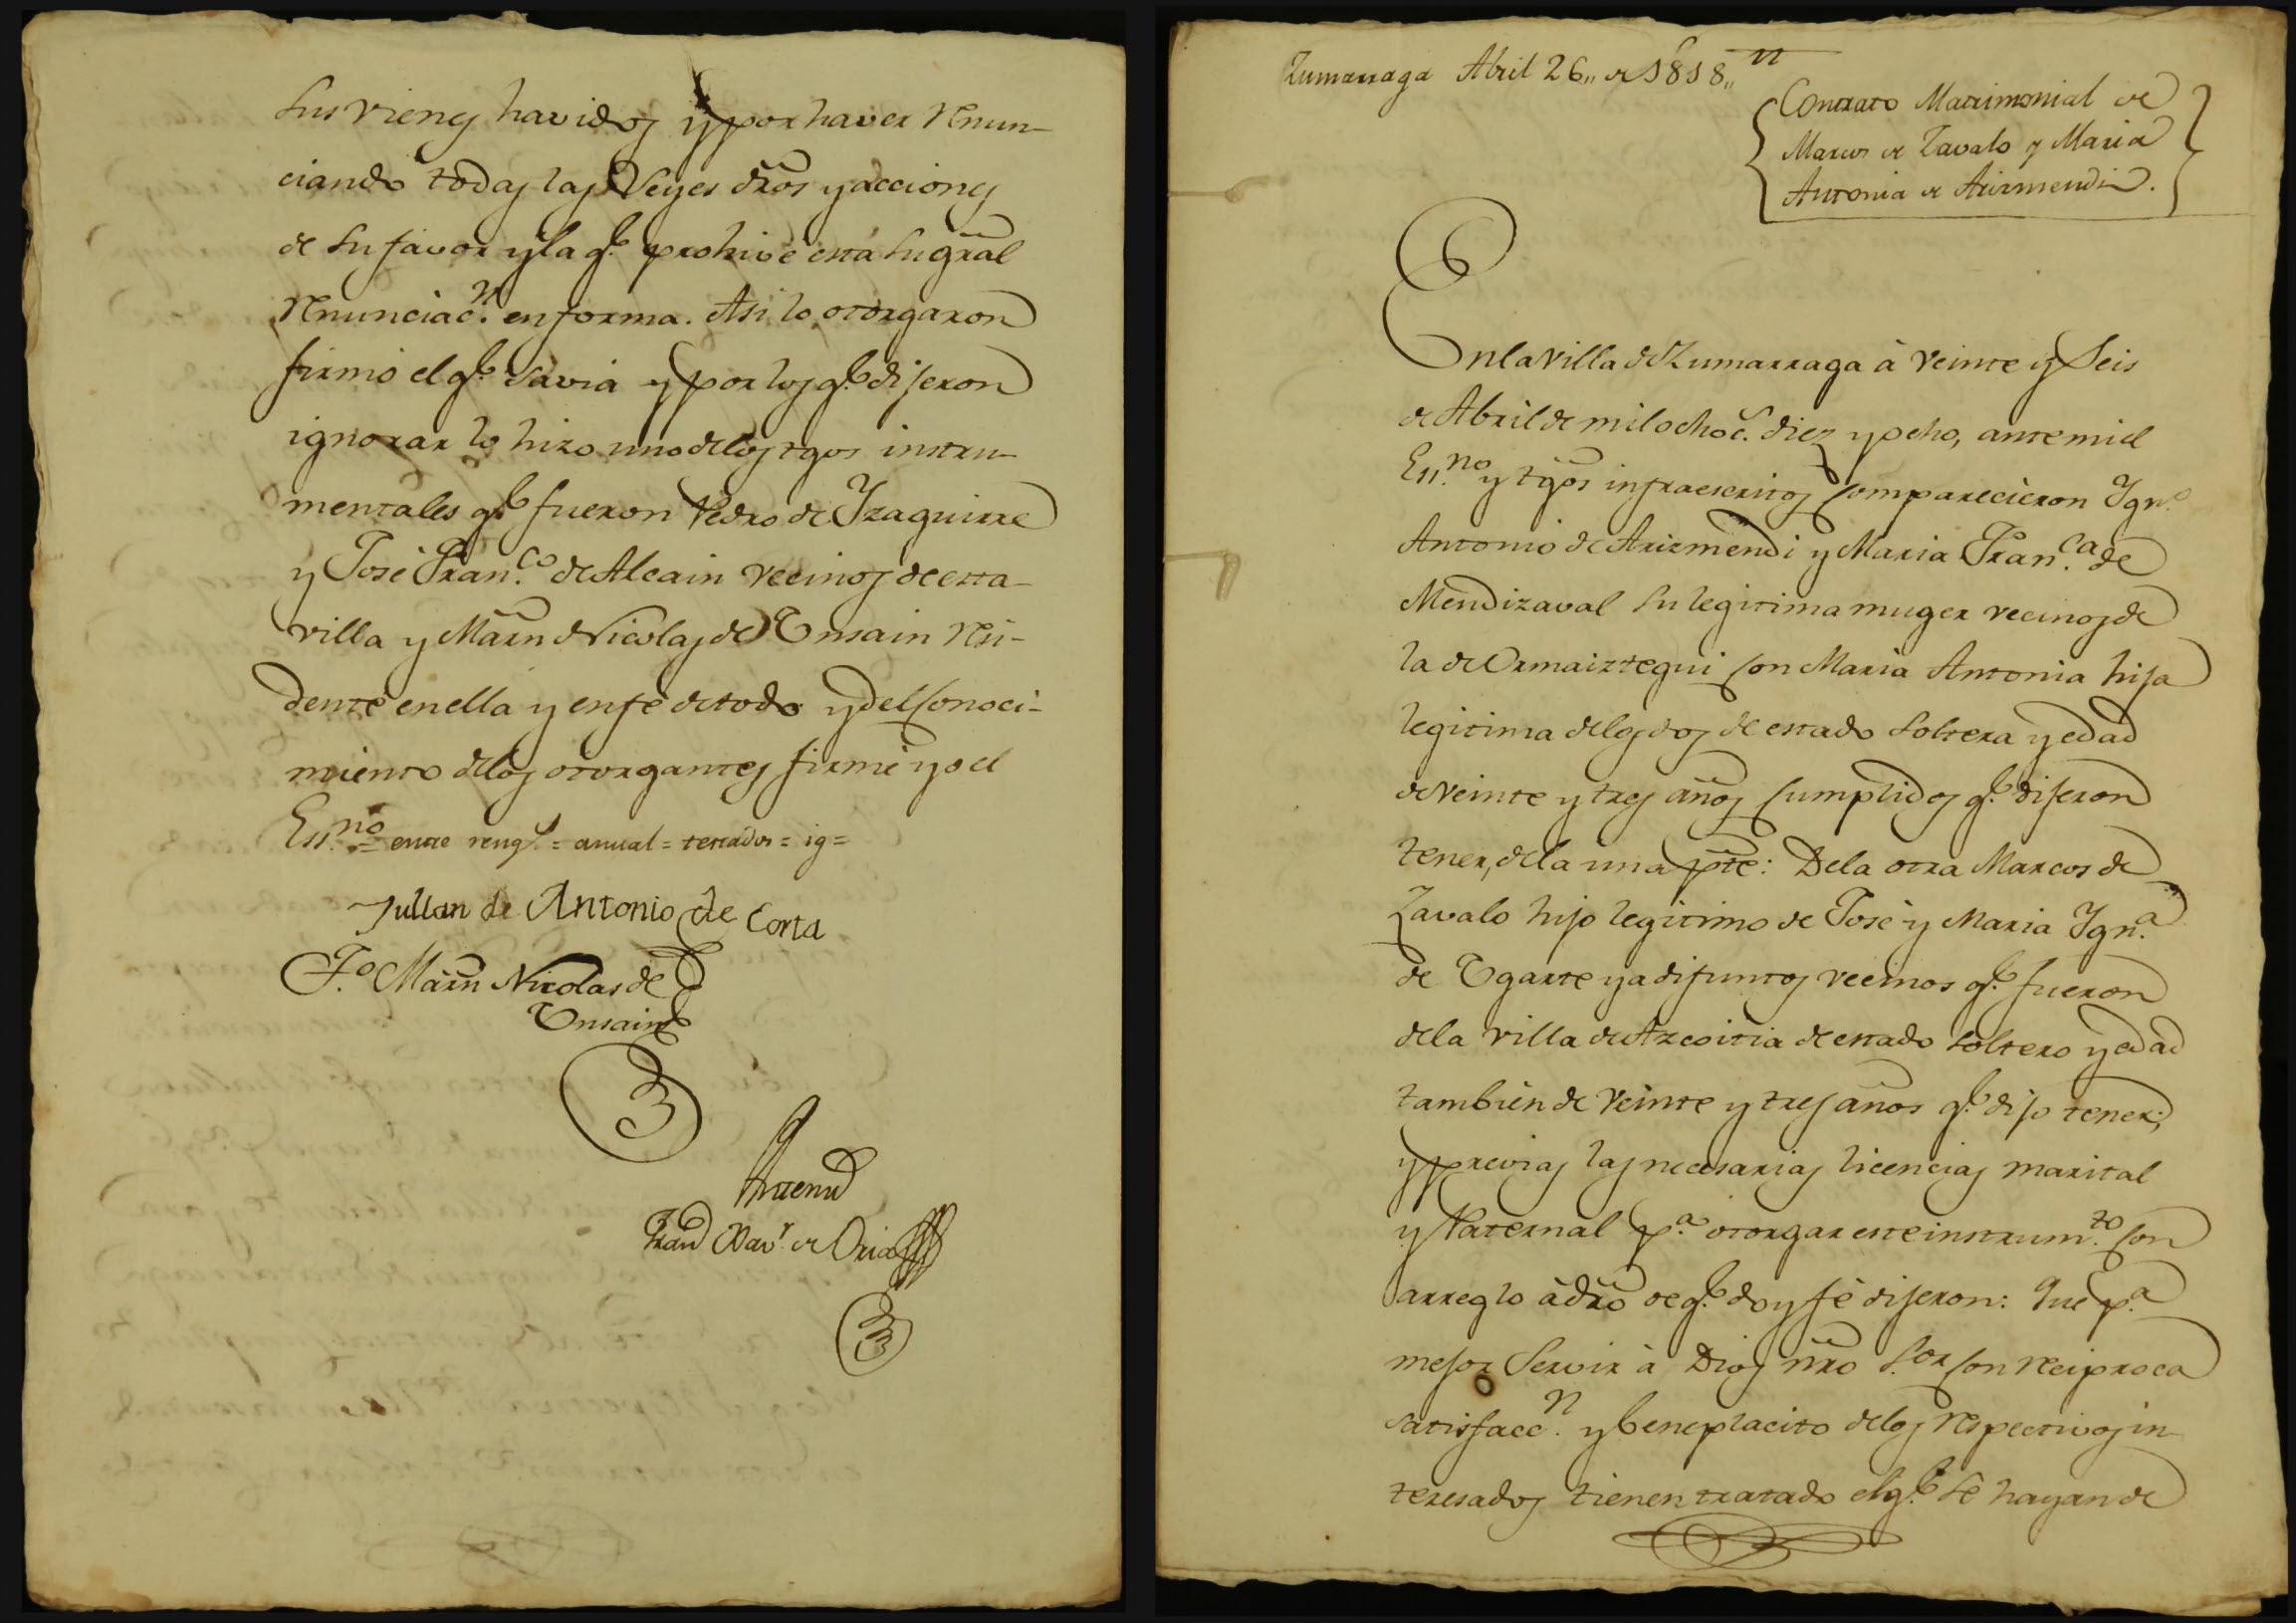 sus vienes havidos y por haver renun-
ciando todas las Leyes dr̃os y acciones
de su favor y la q.e prohive esta su gr̃al
renunciac.n en forma. Asi lo otorgaron
firmó el q.e savia y por los q.e dijeron
ignorar lo hizo uno de los tgõs instru-
mentales q.e fueron Pedro de Yzaguirre
y José Fran.co de Alcain vecinos de esta
villa y Mãrn Nicolas de Unsain resi-
dente en ella y en fé de todo y del conoci-
miento de los otorgantes firmé yo el
Ess.no = entre rengs. = anual = = ig =
Julian de Antonio de Corta
T.o Mãrn Nicolas de
Unsain
Antemi
Fran.co Xav.r de Oria
Zumarraga Abril 26,, de 1818,,
Contrato Matrimonial de
Marcos de Zavalo y Maria
Antonia de Arizmendi.
En la villa de Zumarraga à veinte y seis
de Abril de mil ochoc.s diez y ocho, ante mi el
Ess.no y tgõs infraescritos comparecieron Ygn.o
Antonio de Arizmendi y Maria Fran.ca de
Mendizaval su legitima muger vecinos de
la de Ormaiztegui con Maria Antonia hija
legitima de los dos de estado soltera y edad
de veinte y tres años cumplidos q.e dijeron
tener, de la una pt̃e: De la otra Marcos de
Zavalo hijo legitimo de José y Maria Ygn.a
de Ugarte ya difuntos vecinos q.e fueron
de la villa de Azcoitia de estado soltero y edad
tambien de veinte y tres años q.e dijo tener,
y previas las necesarias licencias marital
y Paternal p.a otorgar este instrum.to con
arreglo à dr̃o de q.e doy fé dijeron: Que p.a
mejor servir à Dios nr̃o S.or con reciproca
satisfacc.n y beneplacito de los respectivos in-
teresados tienen tratado el q.e se hayan de